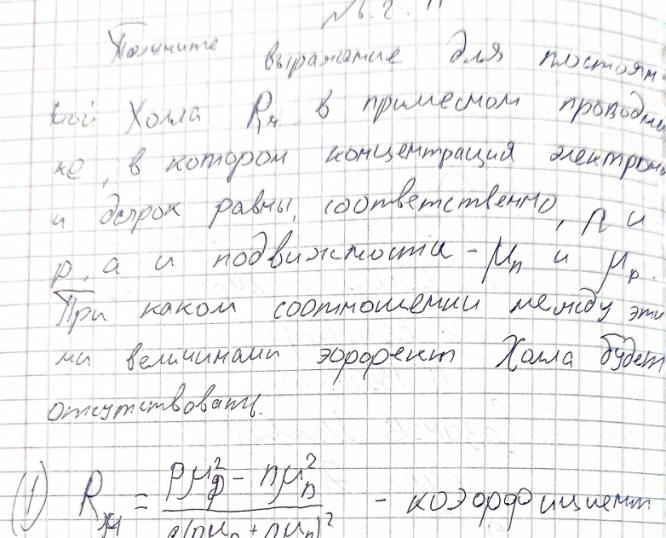 №6.2.11
Получите выражение для постоян-
ной Холла Rн в примесном проводни
ке, в котором концентрация электроно
и дырок равны, соответственно, n и
p, а и подвижности - μn и μp.
При каком соотношении между эти
ми величинами эффект Холла будет
отсутствовать.
(1) Rн = (pμp² - nμn²) / e(pμp + nμn)² - коэффициент